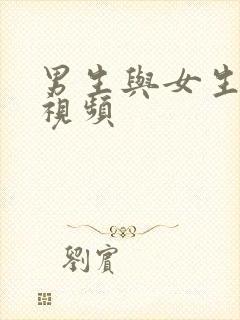 男生與女生
視頻
劉賓